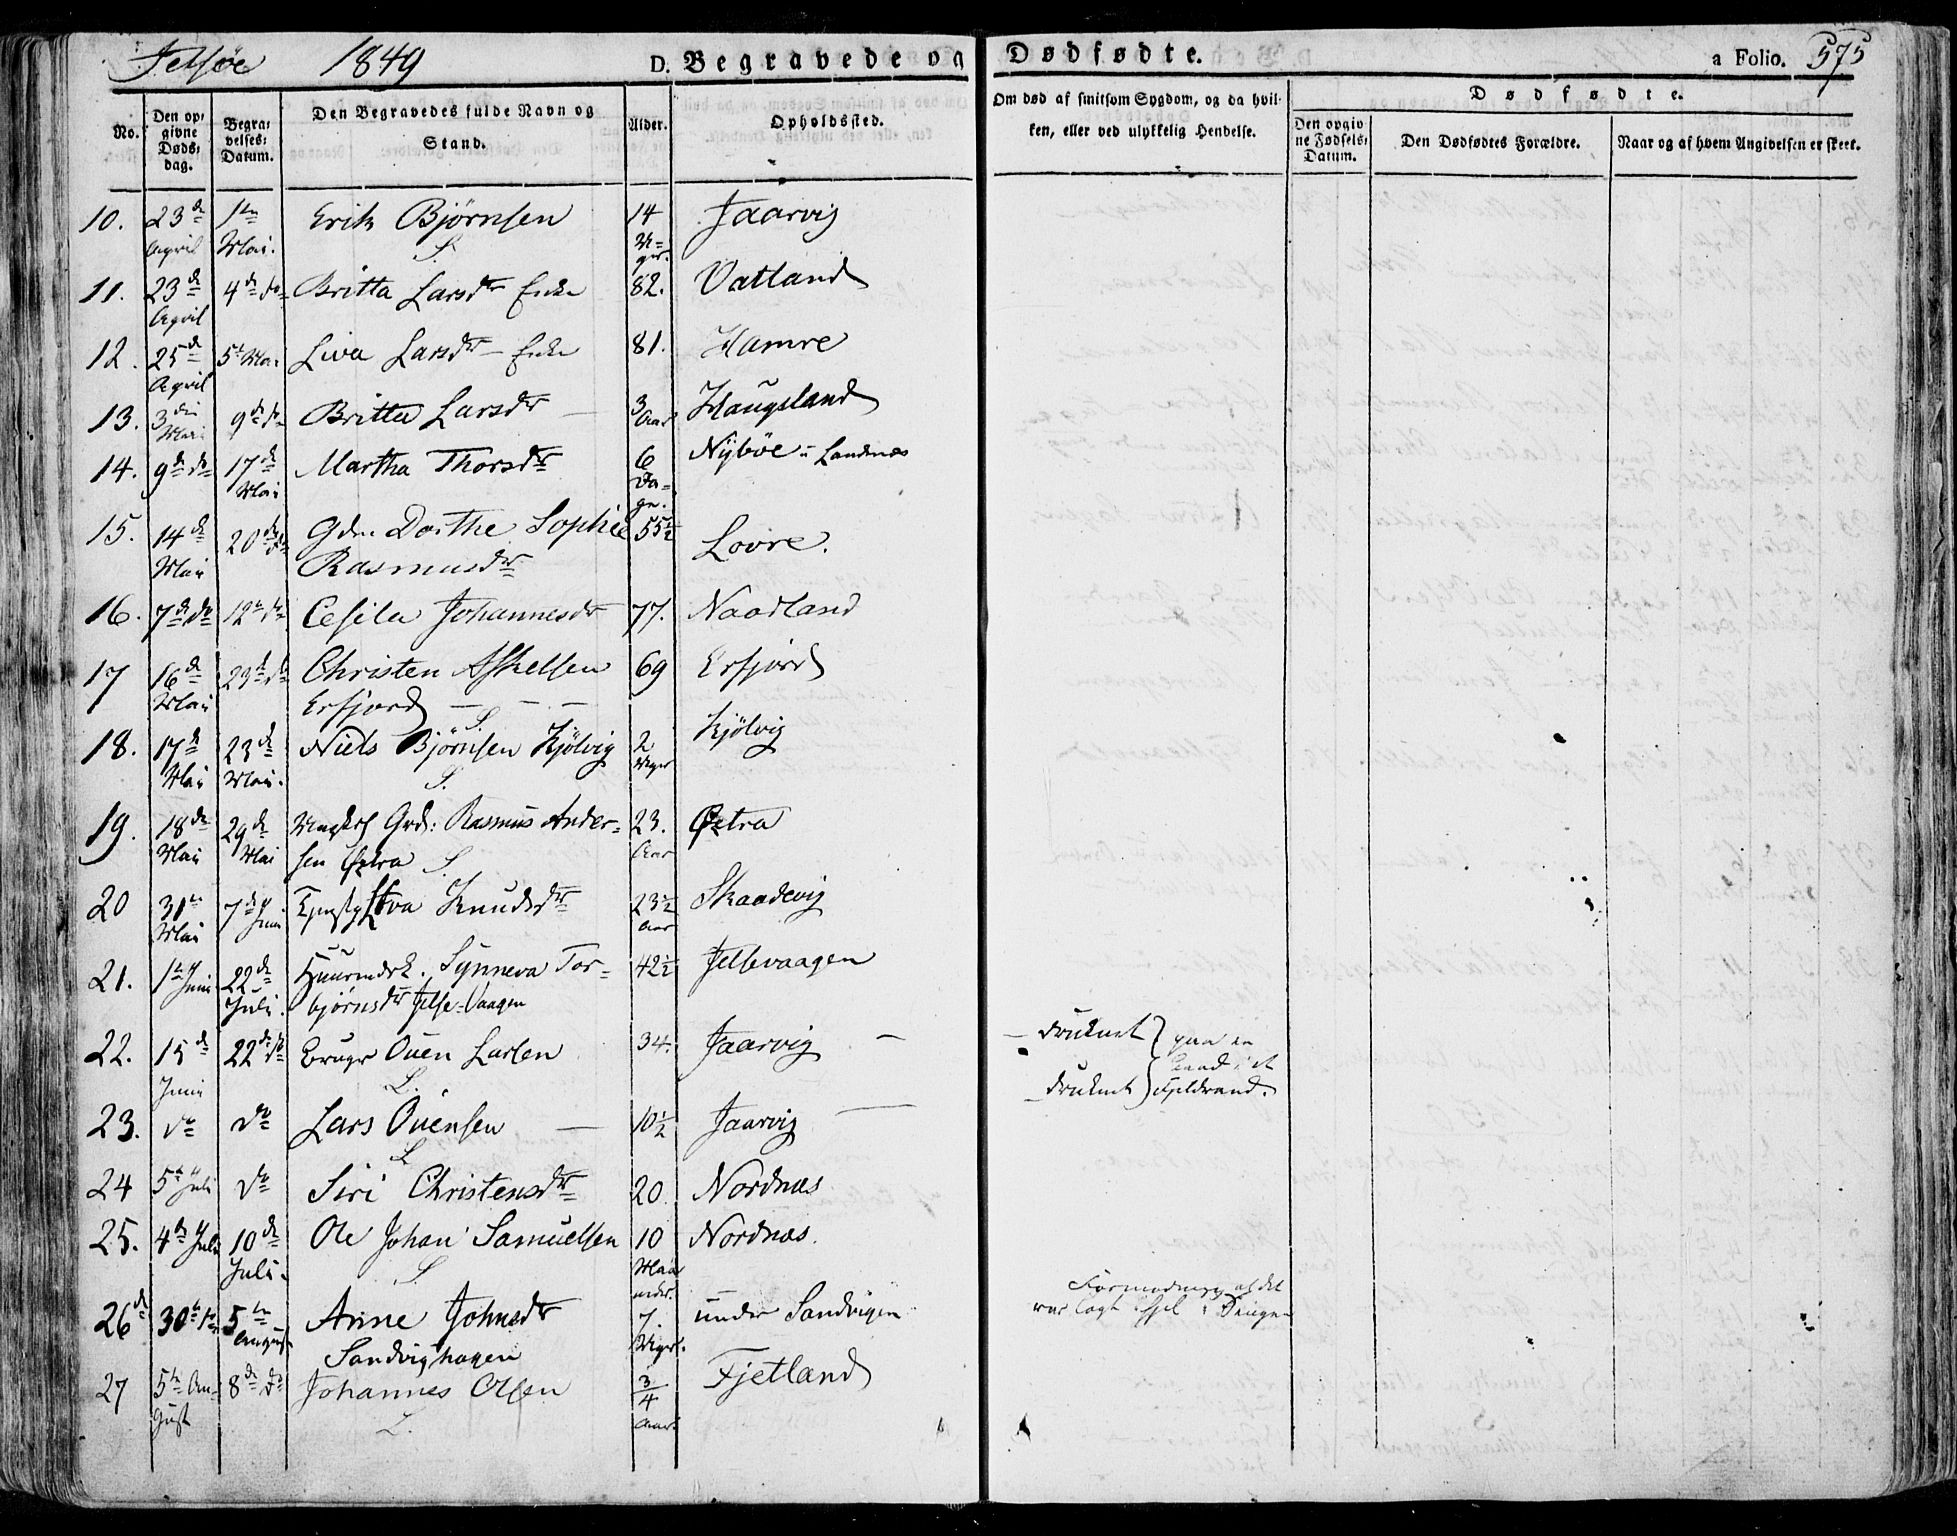 Jelsøe 1849 D. Begravede og Dødfødte. a Folio. 575
No. Den opgivne Døds-dag. Begravelses-Datum. Den Begravedes fulde Navn og Stand. Alder. Opholdssted. Om død af smitsom Sygdom, og da hvilken, eller ved ulykkelig Hendelse. Dødfødte. Den opgivne Fødsels-Datum. Den Dødfødtes Forældre. Naar og af hvem Angivelsen er skeet.
10. 23de April 1te Mai. Erik Bjørnsen 14 Uger. Jaarvig
S.
11. 23de April 4de do Britta Larsdr Enke 82. Vatland
12. 25de April 5te Mai Liva Larsdr - Enke 81. Hamre
13. 3die Mai 9de do Britta Larsdr — 3 Aar Haugsland
14. 9de do 17de Mai Martha Thorsdr 6 Dage. Nÿbøe u Landnæs
15. 14de Mai 20de do Gdm. Dorthe Sophie 55½ Lovre.
Rasmusdr
16. 7de do 12te do Cesila Johannesdr 77. Naadland
17 16de Mai 23de do Christen Askelsen 69 Erfjord
Erfjord — — —
S.
18. 17de Mai 23de Mai. Niels Bjørnsen Kjølvig 2 Uger Kjölvig
S.
19. 18de Mai 29de Mai Grd: Rasmus Ander- 23. Aar Øetra
sen Øetra S.
20 31te Mai 7de Juni Eva Knudsdr 23½ Aar Skaadevig
21. 1te Juni 22de Juli. Huusmdsk. Synneva Tor- 42½ Jelsevaagen
bjørnsdr Jelse-Vaagen
22. 15de Juni 22de do Bruger Ouen Larsen 34. Jaarvig — — druknet } paa en
L. druknet } Baad i et Fjeldvand.
23. do do Lars Ouensen — 10½ Jaarvig —
L.
24 5te Juli do Siri Christensdr 20. Nordnæs
25. 4de Juli 10de Juli. Ole Johan Samuelsen 10 Maaneder. Nordnæs.
S.
26de 30te do 5te August Anne Johnsdr 7. Uger. under Sandvigen
Sandvighagen
var lagt ihjel i Sengen
27 5te August 8de do Johannes Olsen ¾ Aar. Fjetland
L.